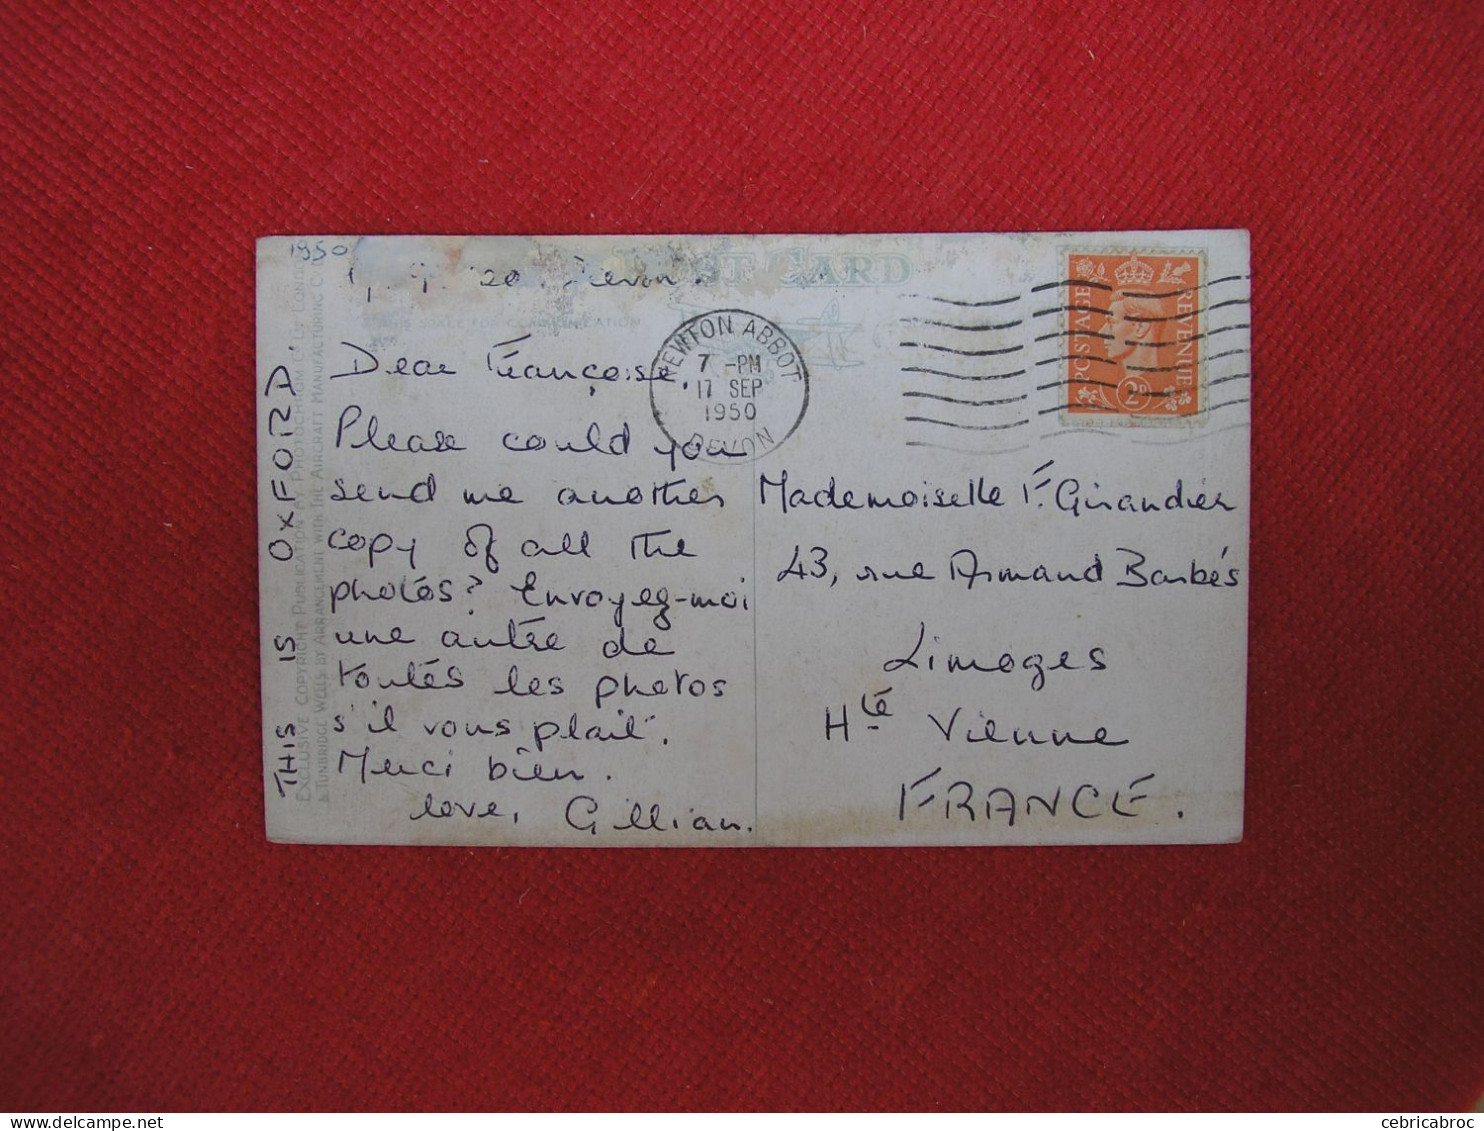 1950
POST CARD
Devon.
THIS SPACE FOR COMMUNICATION
NEWTON ABBOT
7 -PM
17 SEP
1950
DEVON
POSTAGE
REVENUE
2D
Dear Françoise,
Please could you
send me another
copy of all the
photos? Envoyez-moi
une autre de
toutes les photos
s'il vous plait.
Merci bien.
love, Gillian.
Mademoiselle F. Girandier
43, rue Armand Barbés
Limoges
Hte Vienne
FRANCE.
THIS IS OXFORD.
EXCLUSIVE COPYRIGHT PUBLICATION BY PHOTOCHROM CO LTD LONDON
& TUNBRIDGE WELLS BY ARRANGEMENT WITH THE AIRCRAFT MANUFACTURING CO
cebricabroc